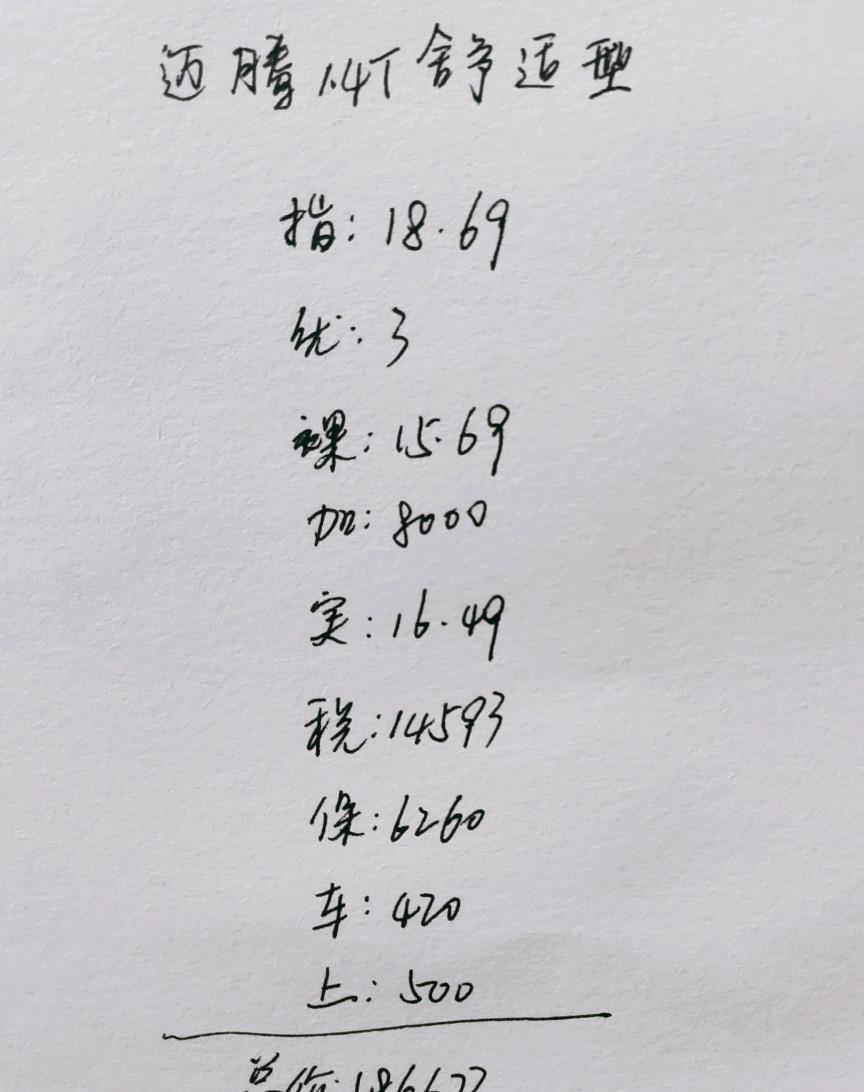 迈腾 1.4T 舒适型
指: 18.69
优: 3
裸: 15.69
加: 8000
实: 16.49
税: 14593
保: 6260
车: 420
上: 500
总价: 186673